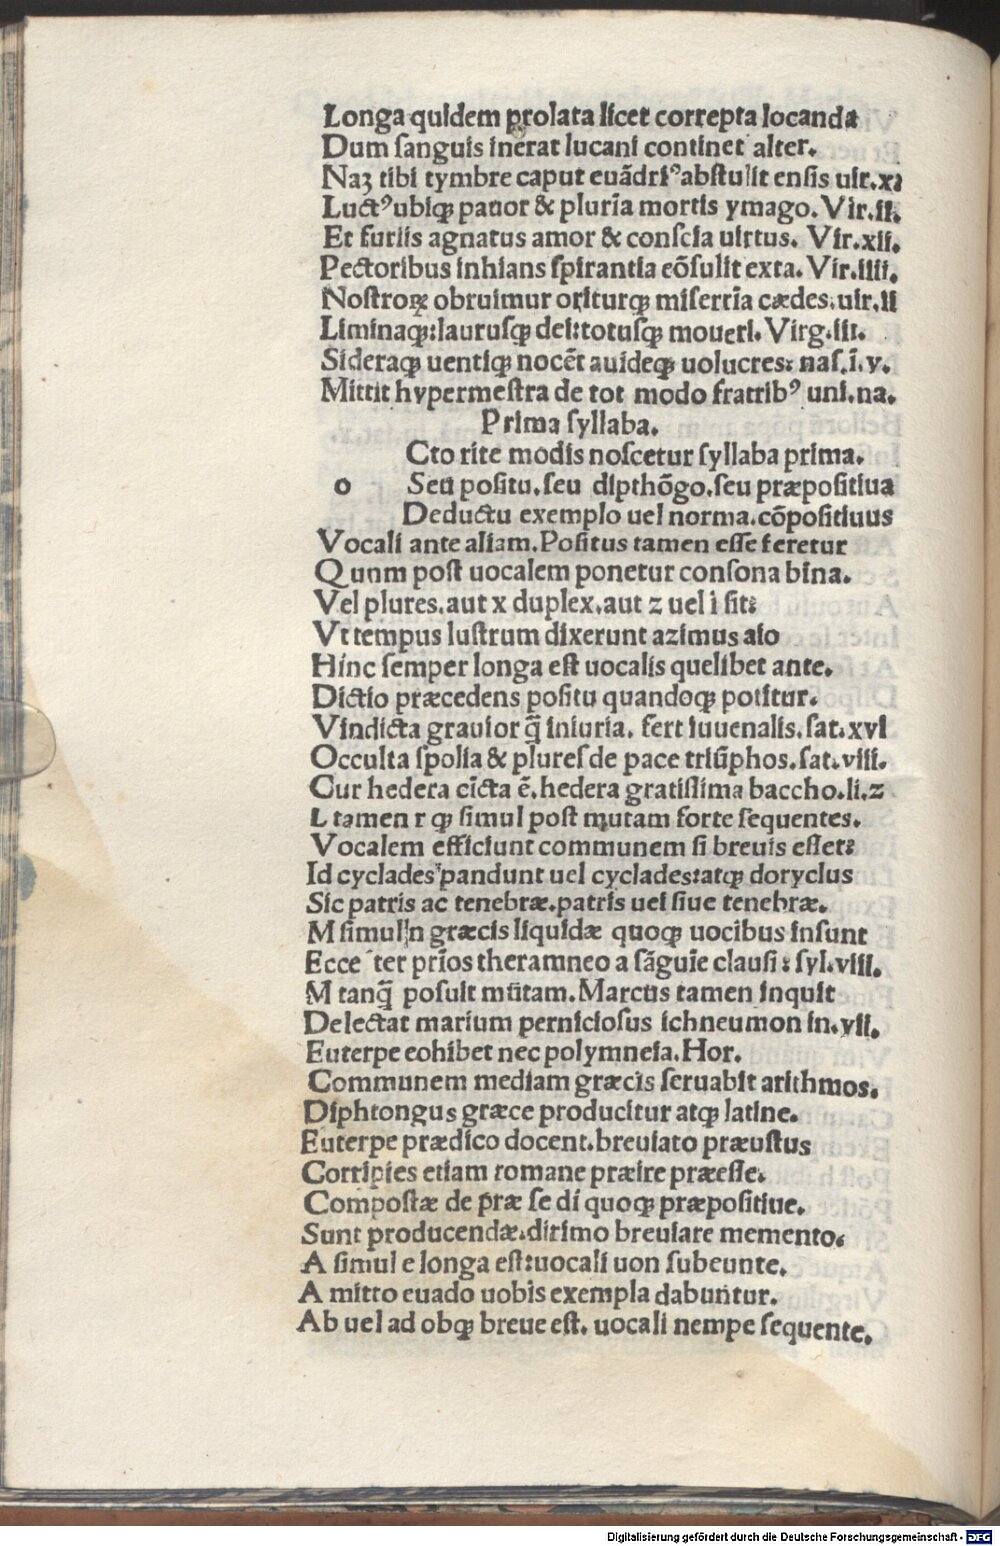 Longa quidem prolata licet correpta locanda
Dum ſanguis inerat lucani continet alter.
Naꝫ tibi tymbre caput euãdriꝰ abſtulit enſis uir.x
Luctꝰ ubiqꝫ pauor & pluria mortis ymago. Vir.ii.
Et furiis agnatus amor & conſcia uirtus. Vir.xii.
Pectoribus inhians ſpirantia cõſulit exta. Vir.iiii.
Noſtroꝝ obruimur oriturqꝫ miſerria cædes.uir.ii
Liminaqꝫ:laurusqꝫ dei:totuſqꝫ moueri. Virg.iii.
Sideraqꝫ uentiqꝫ nocẽt auideqꝫ uolucres: naſ.ĩ.y.
Mittit hypermeſtra de tot modo fratribꝰ uni.na.
Prima ſyllaba.
Cto rite modis noſcetur ſyllaba prima.
o Seu poſitu.ſeu dipthõgo.ſeu præpoſitiua
Deductu exemplo uel norma.cõpoſitiuus
Vocali ante aliam.Poſitus tamen eſſe feretur
Quum poſt uocalem ponetur conſona bina.
Vel plures.aut x duplex.aut z uel i ſit:
Vt tempus luſtrum dixerunt azimus aio
Hinc ſemper longa eſt uocalis quelibet ante.
Dictio præcedens poſitu quandoqꝫ potitur.
Vindicta grauior q̃ iniuria. fert iuuenalis.ſat.xvi
Occulta ſpolia & plureſ de pace triũphos.ſat.viii.
Cur hedera cĩcta ẽ.hedera gratiſſima baccho.li.z
L tamen r qꝫ ſimul poſt mutam forte ſequentes.
Vocalem efficiunt communem ſi breuis eſſet:
Id cyclades pandunt uel cyclades:atqꝫ doryclus
Sic patris ac tenebræ.patris uel ſiue tenebræ.
M ſimul in græcis liquidæ quoqꝫ uocibus inſunt
Ecce ter prĩos theramneo a ſãguĩe clauſi: ſyl.viii.
M tanq̃ poſuit mũtam.Marcus tamen inquit
Delectat marium perniciosus ichneumon in.vii.
Euterpe cohibet nec polymneia.Hor.
Communem mediam græcis ſeruabit arithmos.
Diphtongus græce producitur atqꝫ latine.
Euterpe prædico docent.breuiato præuſtus
Corripies etiam romane præire præeſſe.
Compoſtæ de præ ſe di quoqꝫ præpoſitiue.
Sunt producendæ.dirimo breuiare memento.
A ſimul e longa eſt:uocali uon ſubeunte.
A mitto euado uobis exempla dabuntur.
Ab uel ad obqꝫ breue eſt. uocali nempe ſequente.
Digitalisierung gefördert durch die Deutsche Forschungsgemeinschaft - DFG